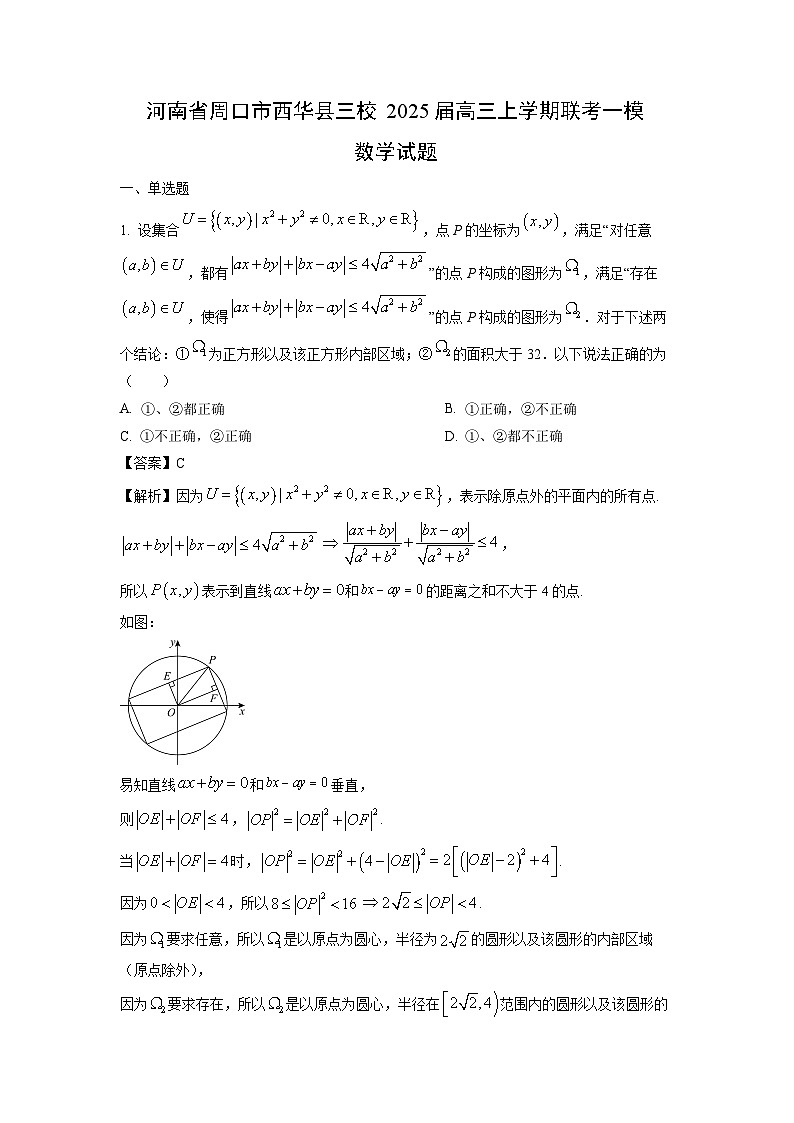 河南省周口市西华县三校 2025 届高三上学期联考一模
数学试题
一、单选题
1. 设集合 U = {(x, y) | x² + y² ≠ 0, x ∈ R, y ∈ R}，点 P 的坐标为 (x, y)，满足“对任意
(a, b) ∈ U，都有 |ax + by| + |bx − ay| ≤ 4√(a² + b²) ”的点 P 构成的图形为 Ω₁，满足“存在
(a, b) ∈ U，使得 |ax + by| + |bx − ay| ≤ 4√(a² + b²) ”的点 P 构成的图形为 Ω₂．对于下述两
个结论：① Ω₁ 为正方形以及该正方形内部区域；② Ω₂ 的面积大于 32．以下说法正确的为
（　　）
A. ①、②都正确 B. ①正确，②不正确
C. ①不正确，②正确 D. ①、②都不正确
【答案】C
【解析】因为 U = {(x, y) | x² + y² ≠ 0, x ∈ R, y ∈ R}，表示除原点外的平面内的所有点.
|ax + by| + |bx − ay| ≤ 4√(a² + b²) ⇒ |ax + by|/√(a² + b²) + |bx − ay|/√(a² + b²) ≤ 4，
所以 P(x, y) 表示到直线 ax + by = 0 和 bx − ay = 0 的距离之和不大于 4 的点.
如图：
y
P
E
F
O
x
易知直线 ax + by = 0 和 bx − ay = 0 垂直，
则 |OE| + |OF| ≤ 4，|OP|² = |OE|² + |OF|².
当 |OE| + |OF| = 4 时，|OP|² = |OE|² + (4 − |OE|)² = 2[(|OE| − 2)² + 4].
因为 0 < |OE| < 4，所以 8 ≤ |OP|² < 16 ⇒ 2√2 ≤ |OP| < 4.
因为 Ω₁ 要求任意，所以 Ω₁ 是以原点为圆心，半径为 2√2 的圆形以及该圆形的内部区域
（原点除外），
因为 Ω₂ 要求存在，所以 Ω₂ 是以原点为圆心，半径在 [2√2, 4) 范围内的圆形以及该圆形的